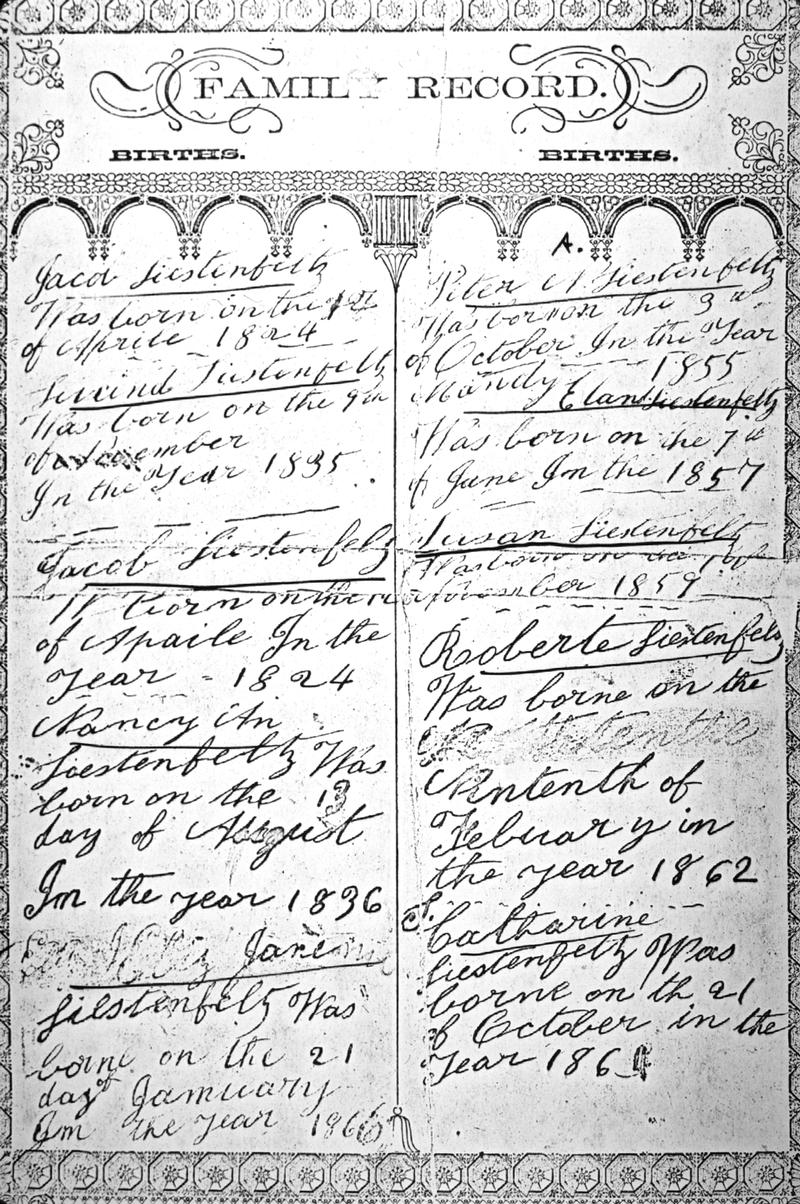 FAMILY RECORD.
BIRTHS.
Jacod Liestenfeltz
Was born on the 1st
of Aprile 1824
Liestenfeltz
Was born on the 9th
of
In the Year 1835
Jacob Liestenfelz
born on the
of Apaile In the
Year - 1824
Nancy An
Liestenfeltz Was
born on the 13
day of August
Im the year 1836
Jane
Liestenfeltz Was
borne on the 21
day of Jamuary
Im the year 1866
BIRTHS.
A.
Peter N Liestenfeltz
Was born on the 3
of October In the Year
1855
Mandy
Elan Liestenfeltz
Was born on the 7th
of June Im the 1857
Susan Liestenfeltz
Was born on the 1st
November 1859
Roberte Liestenfelz
Was borne on the
Nintenth of
Febuary in
the year 1862
S.
Catharine
Liestenfeltz Was
borne on th 21
of October in the
Year 1864